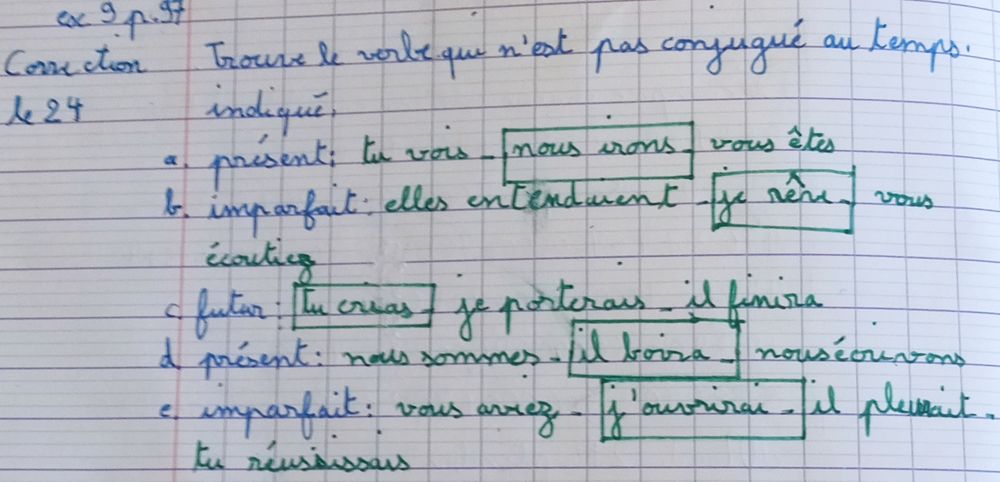 ex 9 p.97
Correction Trouve le verbe qui n'est pas conjugué au temps.
le 24 indiqué.
a. présent: tu vois - nous irons - vous êtes
b. imparfait: elles entenduent - je rêve - vous
écoutiez
c futur: tu crias je porterais - il finira
d présent: nous sommes - il boira - nous écrivons
e. imparfait: vous aviez - j'ouvrirai - il pleuvait -
tu réussissais